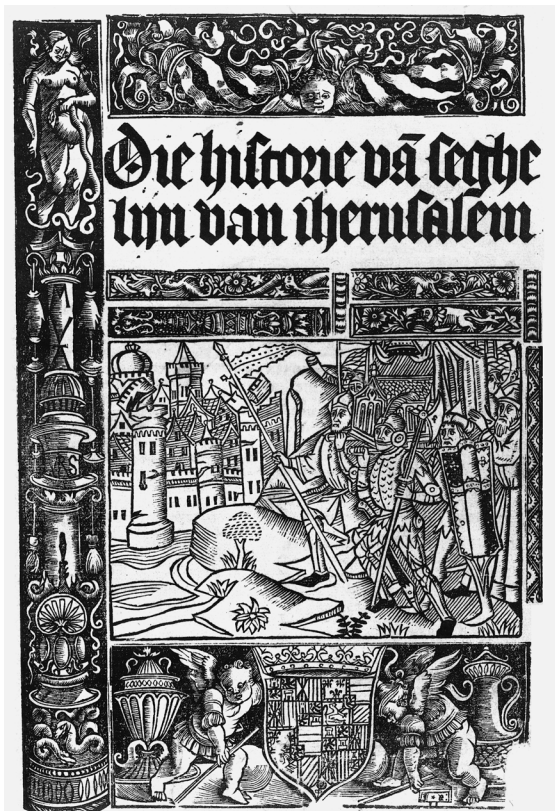 Die historie vā seghe
lijn van iherusalem